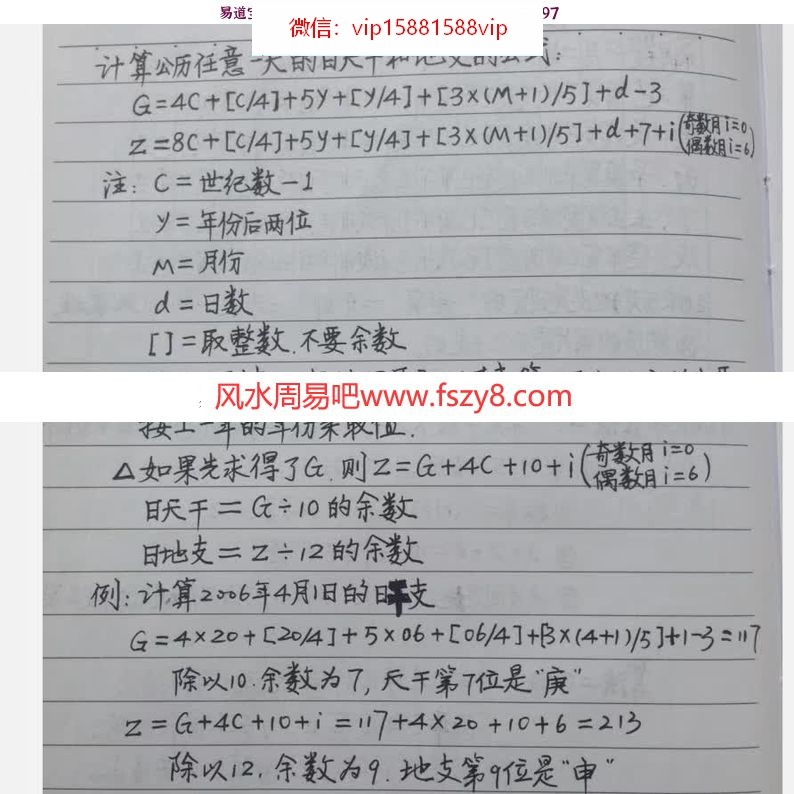 易道
97
微信：vip15881588vip
计算公历任意一天的日天干和地支的公式：
G=4C+[C/4]+5y+[y/4]+[3×(M+1)/5]+d-3
Z=8C+[C/4]+5y+[y/4]+[3×(M+1)/5]+d+7+i(奇数月i=0
偶数月i=6)
注：C=世纪数-1
y=年份后两位
M=月份
d=日数
[]=取整数.不要余数
风水周易吧www.fszy8.com
按上一年的年份来取值.
△如果先求得了G.则Z=G+4C+10+i(奇数月i=0
偶数月i=6)
日天干=G÷10的余数
日地支=Z÷12的余数
例：计算2006年4月1日的日干支
G=4×20+[20/4]+5×06+[06/4]+[3×(4+1)/5]+1-3=117
除以10.余数为7,天干第7位是"庚"
Z=G+4C+10+i=117+4×20+10+6=213
除以12.余数为9.地支第9位是"申"